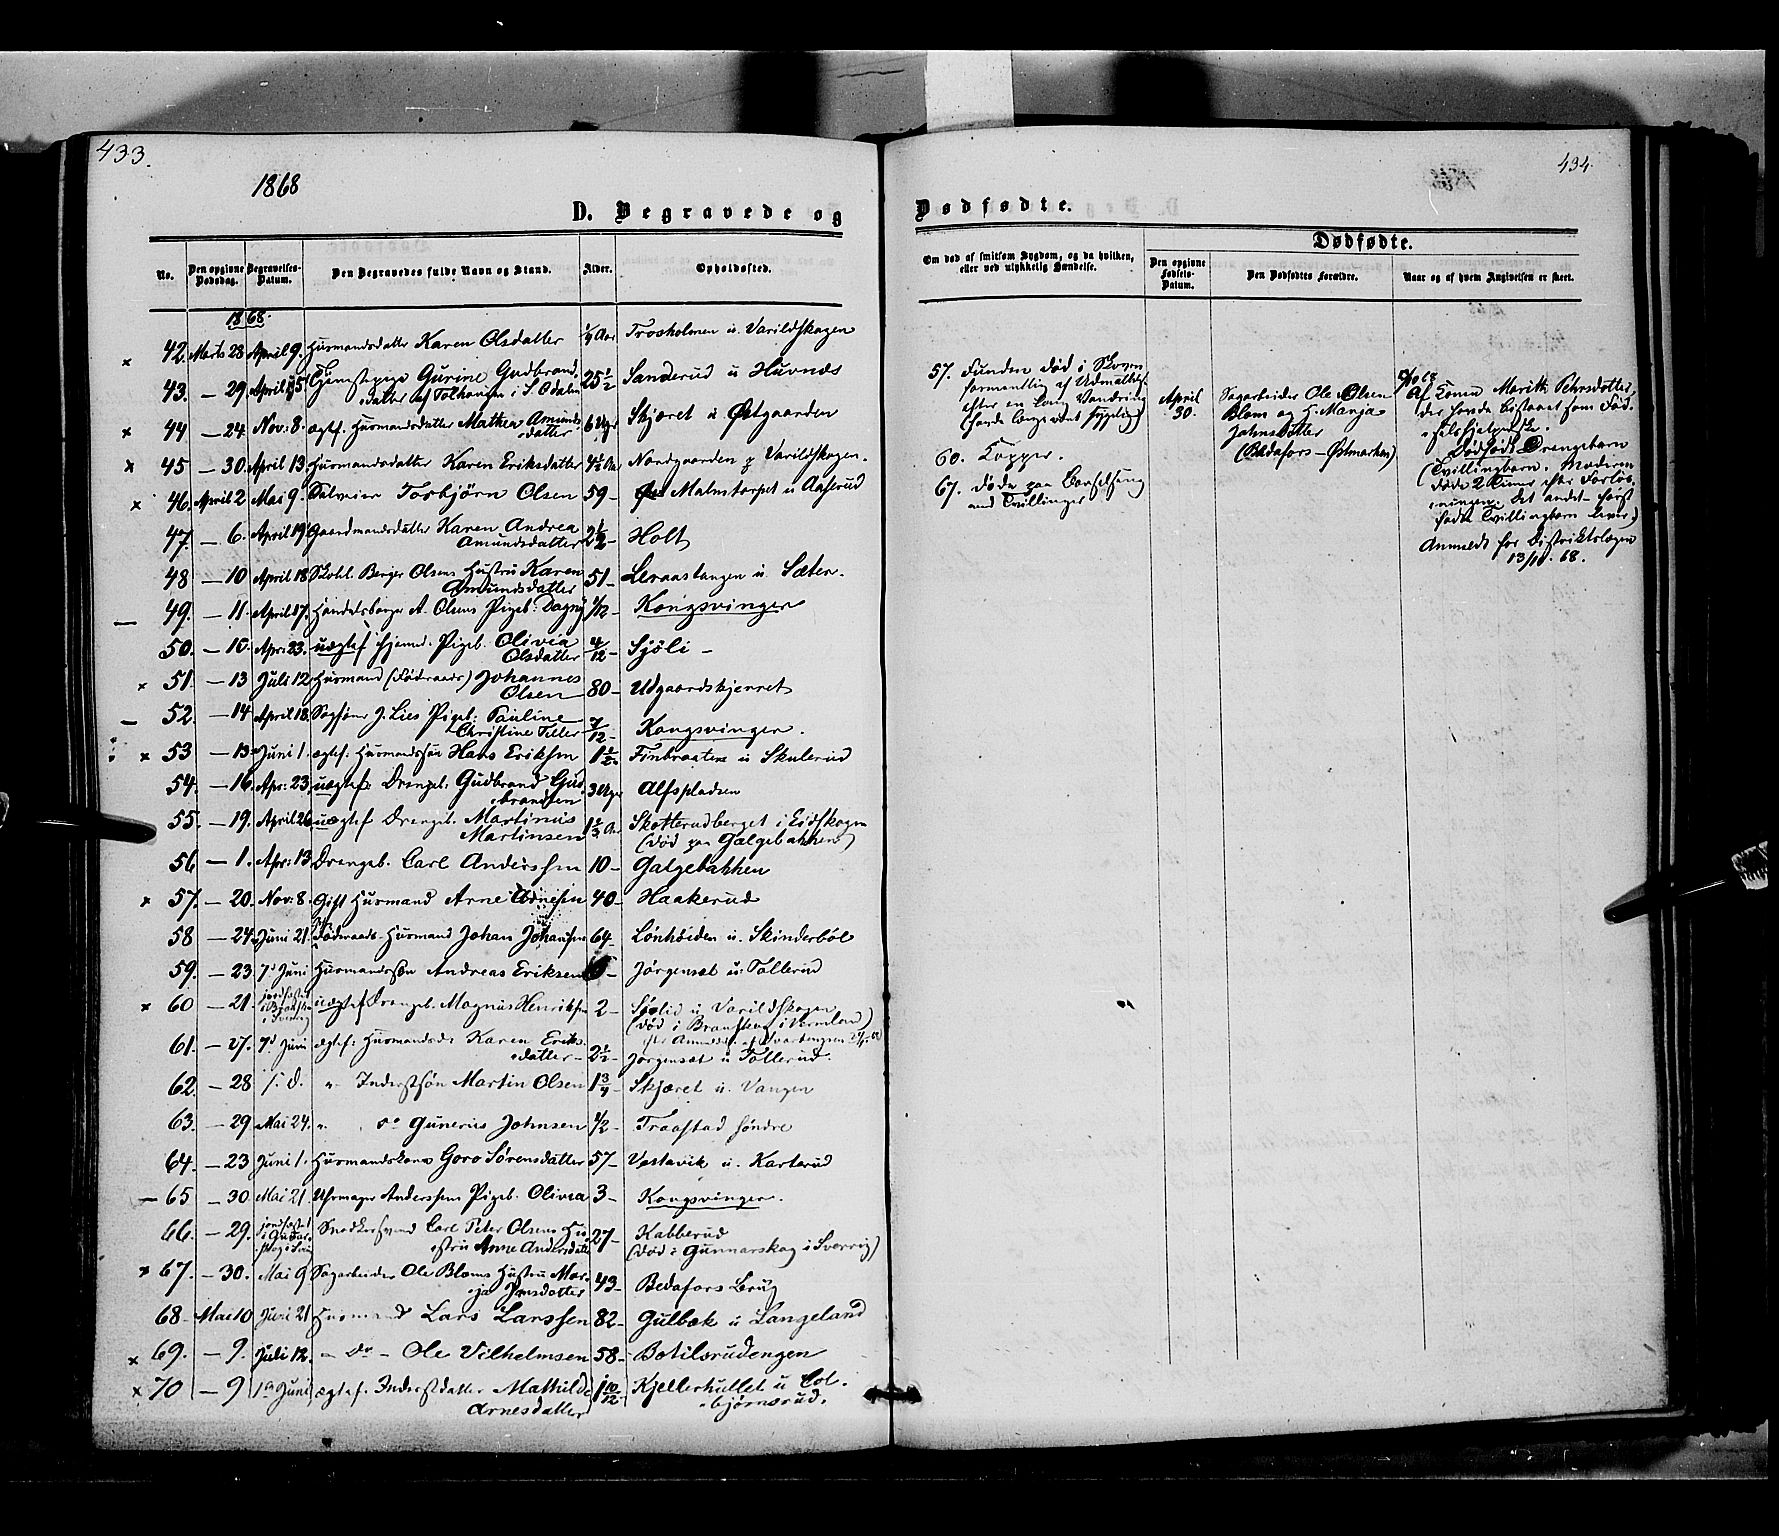 433.
1868
D. Begravede og
No. Den opgivne Dødsdag. Begravelses-Datum. Den Begravedes fulde Navn og Stand. Alder. Opholdssted.
1868.
42. Marts 28 April 9. Husmandsdatter Karen Olsdatter ¼ Aar Trosholmen u. Varildskogen
43. — 29. April Tjenestepige Gurine Gudbrands-
datter af Tolhaugen i S. Odalen 25½ Sanderud u Huvnæs
44 — 24. Nov: 8. ægtef. Husmandsdatter Mathea Amunds-
datter 6 Uger Skjæret u Østgaarden
45 — 30. April 13. Husmandsdatter Karen Eriksdatter 4½ Aar Nordgaarden p Varildskogen.
46. April 2. Mai 9. Selveier Torbjørn Olsen 59 — Malmtorpet u Aaserud
47. — 6. April 19. Gaardmandsdatter Karen Andrea
Amundsdatter 2½ — Holt
48 — 10 April 18. Skobl. Berger Olsens Hustru Karen
Amundsdatter 51 — Leraastangen u. Sæter.
49. — 11. April 17. Handelsborger A. Olsens Pigeb: Dagny 1/12 — Kongsvinger
50. — 10. Apr: 23. uægtef hjemmed. Pigeb. Olivia
Olsdatter 4/12 — Sjöli —
51. — 13 Juli 12. Husmand (Föderaads) Johannes
Olsen 80 — Udgaardskjerret
52. — 14 April 18. Sagfører J. Lies Pigeb: Pauline
Christine Feller 7/12 — Kongsvinger.
53 — 13. Juni 1. ægtef. Husmandssøn Hans Eriksen 1½ — Finbraaten u Skulerud
54. — 16. Apr: 23. uægtef: Drengeb: Gudbrand Gud-
brandsen 3 Uger Alfspladsen
55. — 19. April 26. uægtef Drengeb. Martinus
Martinsen 1½ Aar Skotterudberget i Eidskogen
(død paa Galgebakken)
56 — 1. Apr: 13. Drengeb. Carl Anderssen 10 — Galgebakken
57. — 20. Nov: 8. Gift Husmand Arne Arnesen 40 — Haakerud
58 — 24. Juni 21. Föderaads-Husmand Johan Johansen 64 — Lönhöiden u. Skinderböl
59. — 23. 7d Juni Husmandssøn Andreas Eriksen — Jörgensæt u: Tollerud
60 — 21. jordfæstet i Brandskog i Sverrig uægtef Drengeb. Magnus Henriksen 2 — Sølid u Varildskogen
(død i Brandskog i Vermland)
61. — 27. 7d Juni ægtef: Husmandsd: Karen Eriks-
datter — 2½ — Jørgensæt u Tollerud.
62. — 28 s. d. " Inderstsøn Martin Olsen 1¾ — Skjæret u. Vangen
63. — 29. Mai 24. " do Gunerius Johnsen ½ — Traastad søndre
64. — 23 Juni 1. Husmandskone Goro Sörensdatter 57 — Vestavik u. Karterud
65 — 30. Mai 21. Uhrmager Anderssens Pigeb. Olivia 3 — Kongsvinger.
66. — 29. jordfæstet i Gunnarskog i Sverrig Snedkersvend Carl Peter Olsens Hu-
stru Anne Andersdatter 27 — Kabberud
(død i Gunnarskog i Sverrig)
67. — 30. Mai 9 Sagarbeider Ole Bloms Hustru Mar-
ja Jensdatter 43 — Bedafors Brug
68 — Mai 10 Juni 21 Husmand Lars Larssen 82 — Gulbæk u Langeland
69. — 9. Juli 12. — Do — Ole Vilhelmsen 58 — Botilsrudengen
70 — 9 Juni ægtef. Inderstdatter Mathilde
Arnesdatter 1 10/12 — Kjellerhullet u Col-
bjørnsrud.
434.
Dødfødte.
Om død af smitsom Sygdom, og da hvilken, eller ved ulykkelig Hændelse.
Dødfødte.
Den opgivne Fødsels-Datum. Den Dødfødtes Forældre. Naar og af hvem Angivelsen er skeet.
57. Funden død i Skoven
formentlig af Udmattelse
efter en lang Vandring
(havde længe været sygelig)
60. Kopper.
67. Døde paa Barselseng
med Tvillinger
April
30.
Sagarbeider Ole Olsen
Blom og H. Marja
Johnsdatter
(Bedafors—Østmarken)
Af Konen Marith Pehrsdotter,
der havde bistaaet som Fød-
selshjelperske.
Dødfødt Drengebarn
(Tvillingbarn. Moderen
døde 2 Timer efter Forløs-
ningen. Det andet først
fødte Tvillingbarn lever.)
Anmeldt for Distriktslægen
13/10. 68.